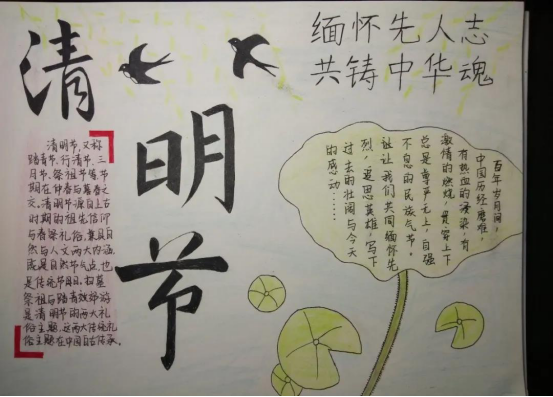 清
明
节
缅怀先人志
共铸中华魂
清明节,又称
踏青节、行清节、三
月节、祭祖节等节
期在仲春与暮春之
交。清明节源自上古
时期的祖先信仰
与春祭礼俗,兼具自
然与人文两大内涵,
既是自然节气点,也
是传统节日,扫墓
祭祖与踏青郊游
是清明节的两大礼
俗主题,这两大传统礼
俗主题在中国自古传承。
百年岁月间,
中国历经磨难,
有热血的浸染,有
激情的燃烧,是穿上下
总是尊严无上,自强
不息的民族气节。
让我们共同缅怀先
烈,追思英雄,写下
过去的壮阔与今天
的感动……